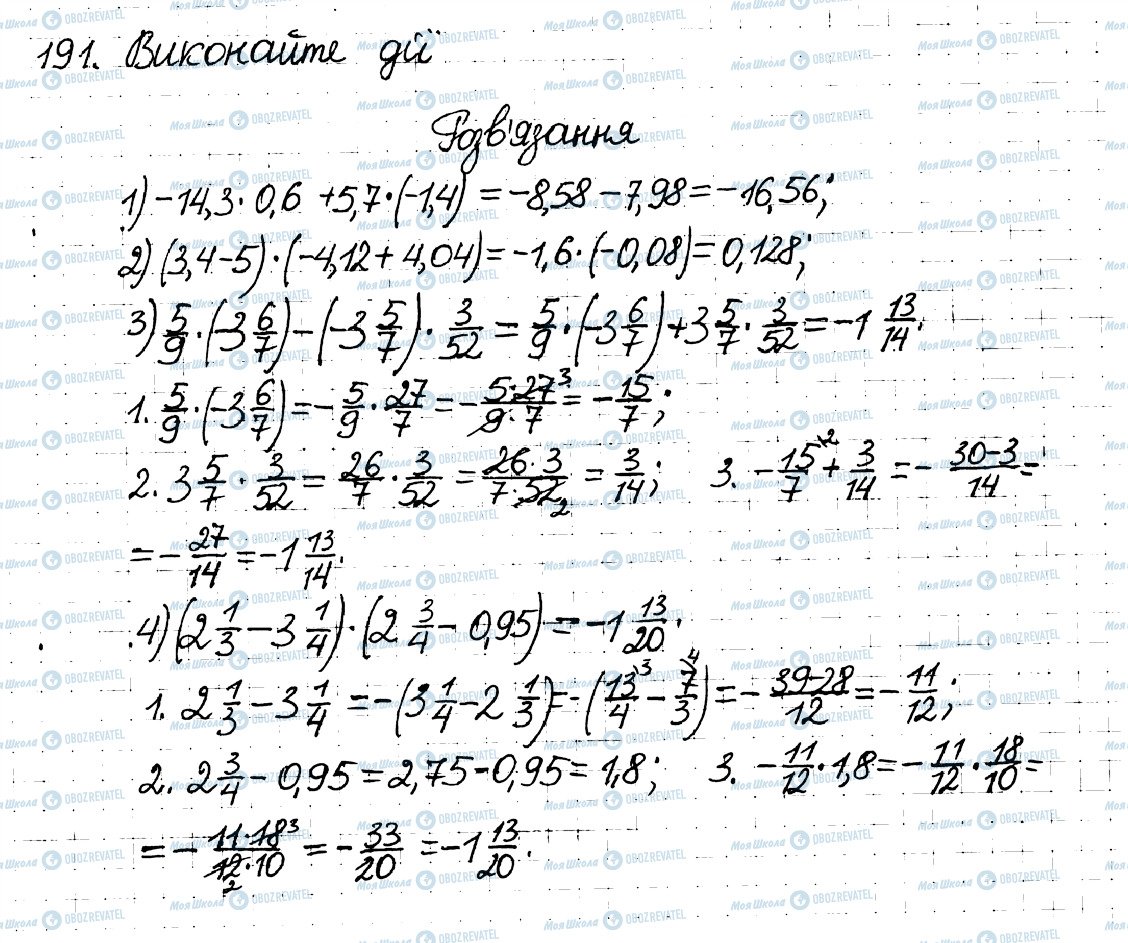 191. Виконайте дії
Розв'язання
1) -14,3 · 0,6 + 5,7 · (-1,4) = -8,58 - 7,98 = -16,56;
2) (3,4 - 5) · (-4,12 + 4,04) = -1,6 · (-0,08) = 0,128;
3) 5/9 · (-3 6/7) - (-3 5/7) · 3/52 = 5/9 · (-3 6/7) + 3 5/7 · 3/52 = -1 13/14.
1. 5/9 · (-3 6/7) = - 5/9 · 27/7 = - 5·27³/9·7 = - 15/7; 
2. 3 5/7 · 3/52 = 26/7 · 3/52 = 26·3/7·52₂ = 3/14; 3. - 15\²/7 + 3/14 = - 30-3/14 =
= - 27/14 = -1 13/14.
4) (2 1/3 - 3 1/4) · (2 3/4 - 0,95) = -1 13/20.
1. 2 1/3 - 3 1/4 = -(3 1/4 - 2 1/3) = -(13\³/4 - 7\⁴/3) = - 39-28/12 = - 11/12;
2. 2 3/4 - 0,95 = 2,75 - 0,95 = 1,8; 3. - 11/12 · 1,8 = - 11/12 · 18/10 =
= - 11·18³/12₂·10 = - 33/20 = -1 13/20.
Моя Школа OBOZREVATEL